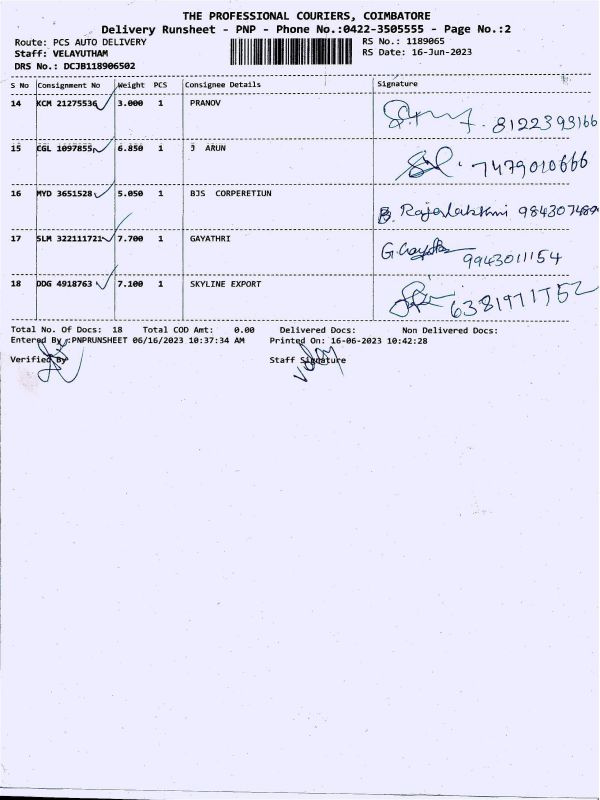 THE PROFESSIONAL COURIERS, COIMBATORE
Delivery Runsheet - PNP - Phone No.:0422-3505555 - Page No.:2
Route: PCS AUTO DELIVERY RS No.: 1189065
Staff: VELAYUTHAM RS Date: 16-Jun-2023
DRS No.: DCJB118906502
S No Consignment No Weight PCS Consignee Details Signature
14 KCM 21275536 3.000 1 PRANOV
8122393166
15 CGL 1097855 6.850 1 J ARUN
7479010666
16 MYD 3651528 5.050 1 BJS CORPERETIUN
B. Rajalakshmi 984307489
17 SLM 322111721 7.700 1 GAYATHRI
G. Gayathri 9943011154
18 DDG 4918763 7.100 1 SKYLINE EXPORT
6381971752
Total No. Of Docs: 18 Total COD Amt: 0.00 Delivered Docs: Non Delivered Docs:
Entered By :PNPRUNSHEET 06/16/2023 10:37:34 AM Printed On: 16-06-2023 10:42:28
Verified By Staff Signature
velay